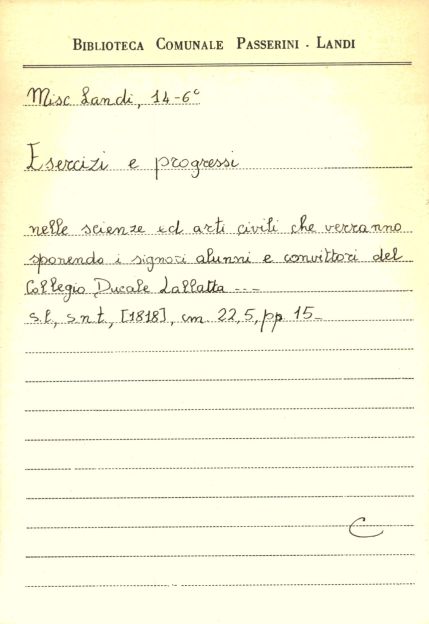 BIBLIOTECA COMUNALE PASSERINI - LANDI
Misc Landi, 14-6°
Esercizi e progressi
nelle scienze ed arti civili che verranno
sponendo i signori alunni e convittori del
Collegio Ducale Lallatta ---
s.l, s.n.t, [1818], cm. 22,5, pp 15_
C